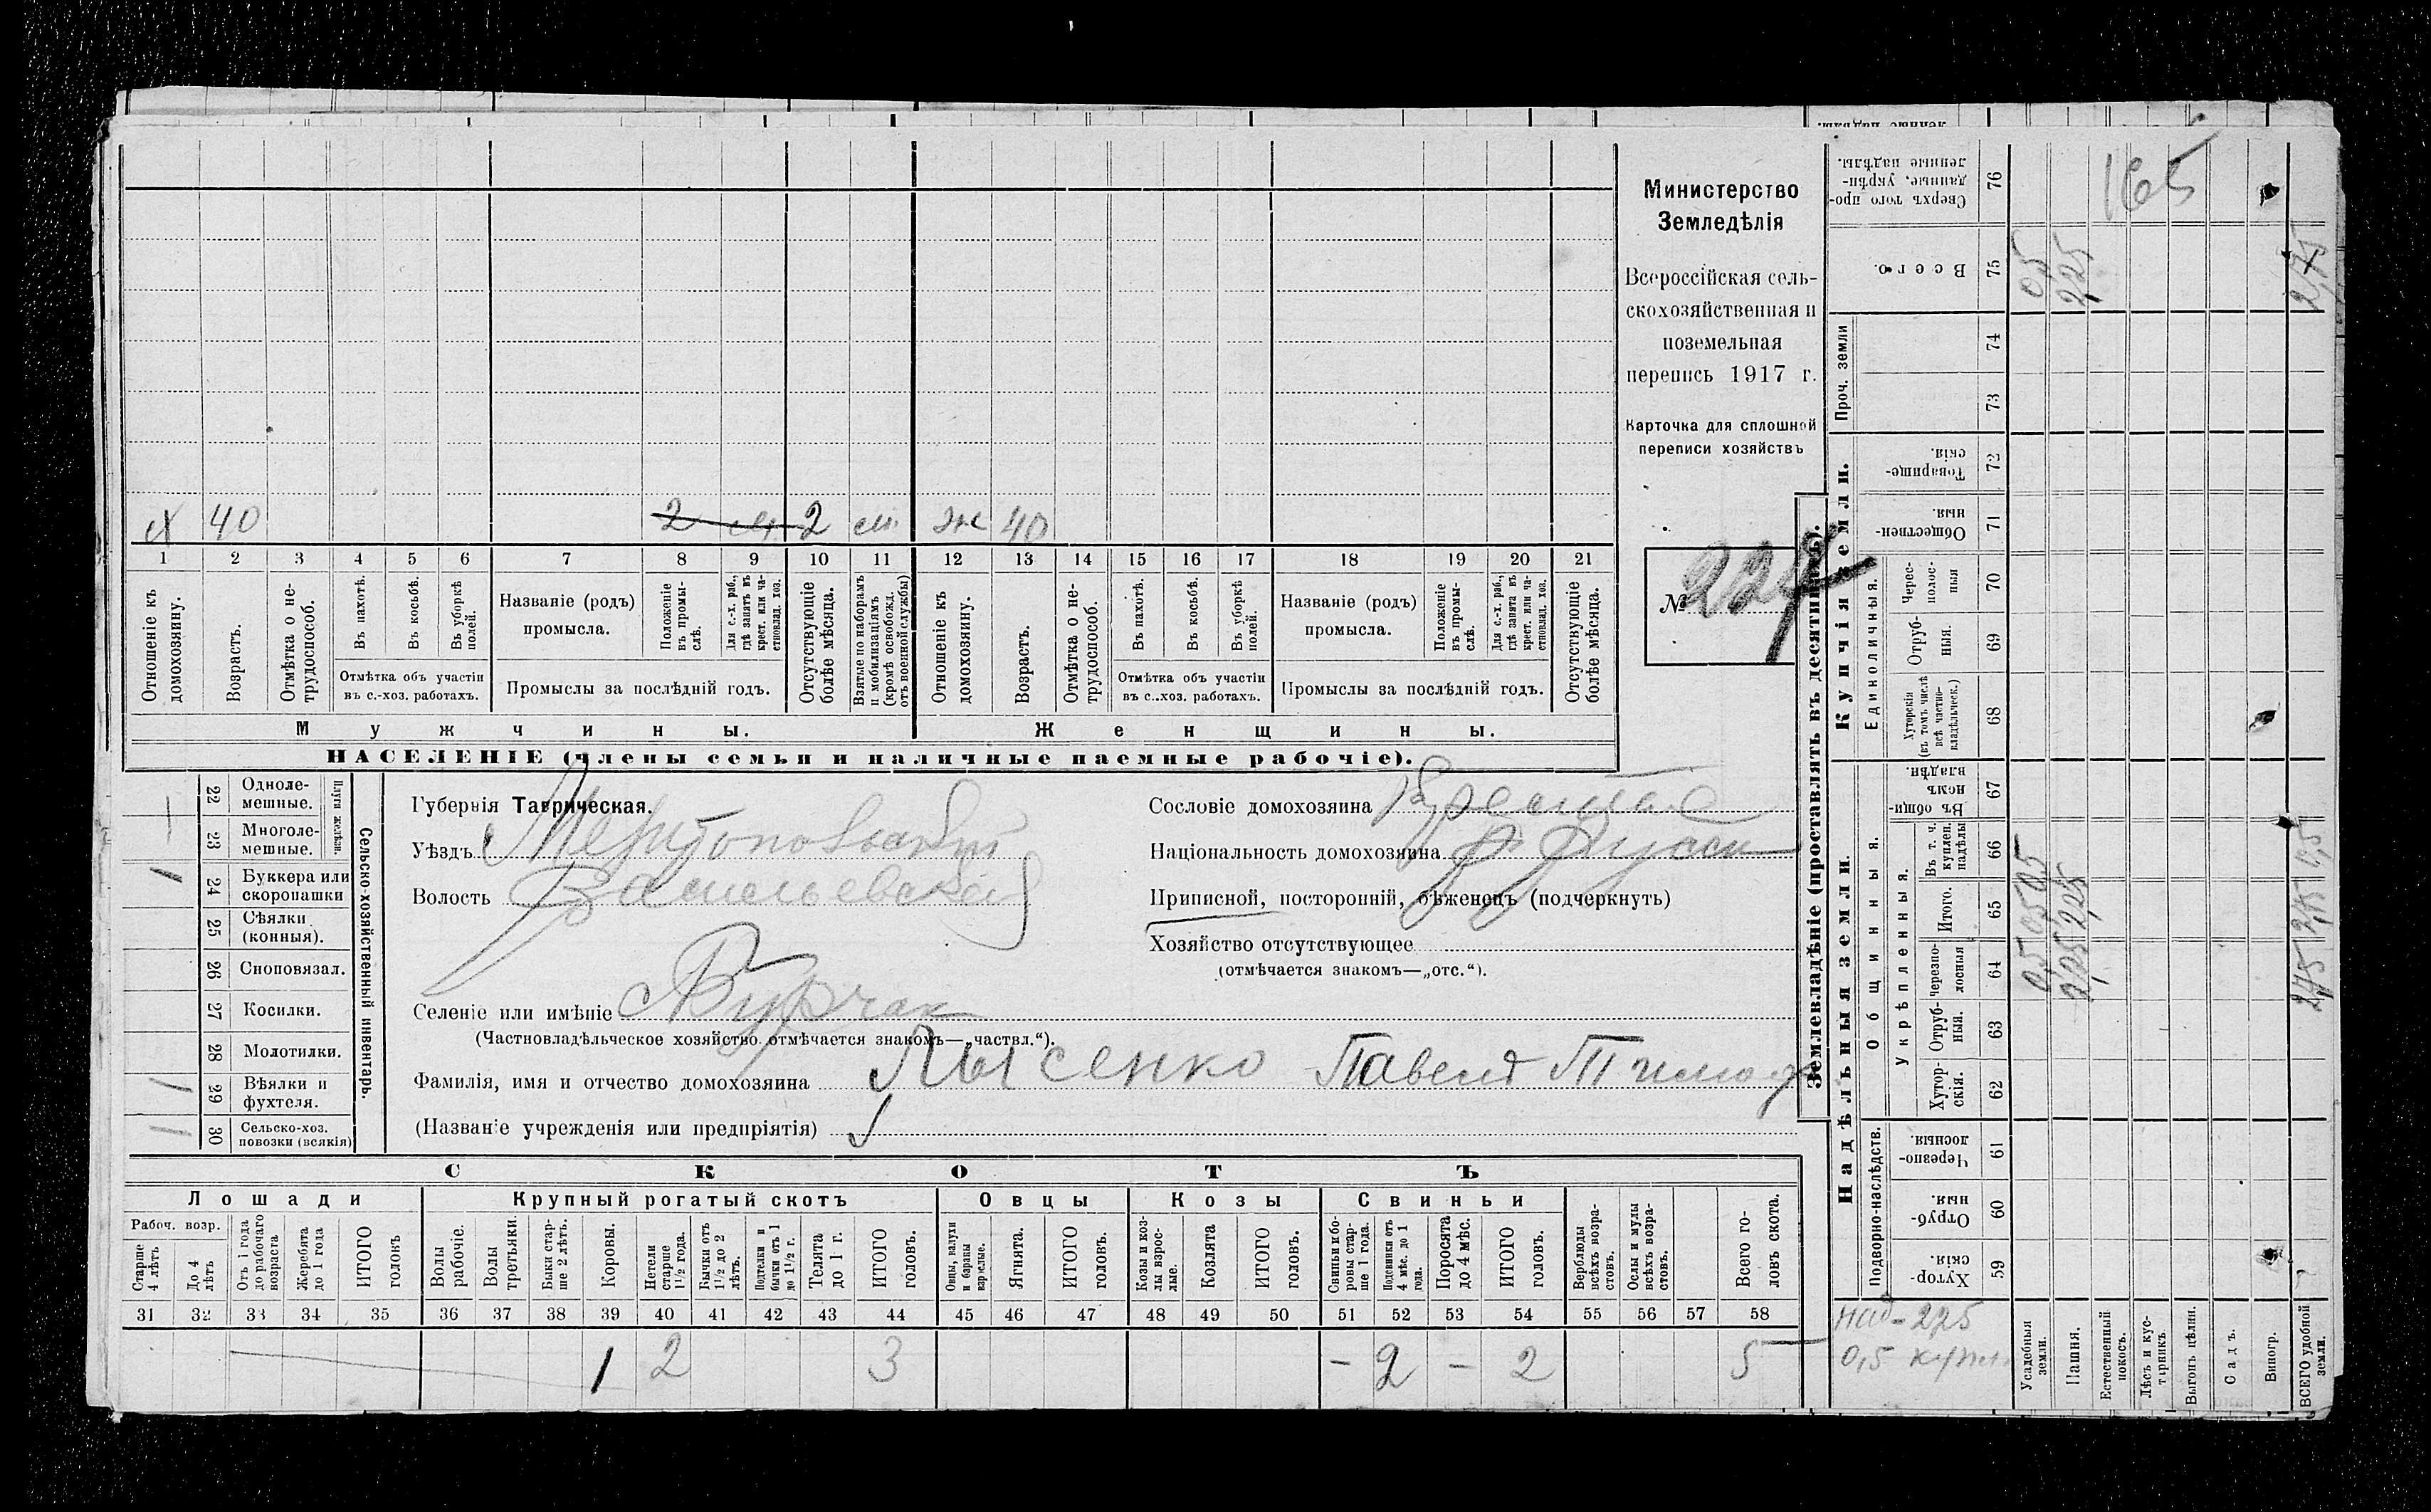 Министерство
Земледѣлія
Всероссійская сель-
скохозяйственная и
поземельная
перепись 1917 г.
Карточка для сплошной
переписи хозяйствъ
№ 227
х 40 2 2 ж 40
1 2 3 4 5 6 7 8 9 10 11 12 13 14 15 16 17 18 19 20 21
Отношеніе къ домохозяину.
Возрастъ.
Отмѣтка о не-трудоспособ.
Въ пахотѣ.
Въ косьбѣ.
Въ уборкѣ полей.
Отмѣтка объ участіи
въ с.-хоз. работахъ.
Названіе (родъ)
промысла.
Положеніе въ промы-слѣ.
Для с.-х. раб., гдѣ занятъ въ крест. или ча-стновлад. хоз.
Промыслы за послѣдній годъ.
Отсутствующіе болѣе мѣсяца.
Взятые по наборамъ и мобилизаціямъ (кромѣ освобожд. отъ военной службы)
Отношеніе къ домохозяину.
Возрастъ.
Отмѣтка о не-трудоспособ.
Въ пахотѣ.
Въ косьбѣ.
Въ уборкѣ полей.
Отмѣтка объ участіи
въ с.-хоз. работахъ.
Названіе (родъ)
промысла.
Положеніе въ промы-слѣ.
Для с.-х. раб., гдѣ занята въ крест. или ча-стновлад. хоз.
Промыслы за послѣдній годъ.
Отсутствующіе болѣе мѣсяца.
Мужчины. Женщины.
НАСЕЛЕНІЕ (члены семьи и наличные наемные рабочіе).
Сельско-хозяйственный инвентарь.
Плуги желѣзн.
22 Одноле-мешные.
23 Многоле-мешные.
24 Буккера или скоропашки
25 Сѣялки (конныя).
26 Сноповязал.
27 Косилки.
28 Молотилки.
29 Вѣялки и фухтеля.
30 Сельско-хоз. повозки (всякія)
Губернія Таврическая.
Уѣздъ Мелитопольскій
Волость Васильевская
Селеніе или имѣніе Бурчак
(Частновладѣльческое хозяйство отмѣчается знакомъ—„частвл.“).
Фамилія, имя и отчество домохозяина Лысенко Павелъ Тимоф
(Названіе учрежденія или предпріятія)
Сословіе домохозяина
Національность домохозяина Русск
Приписной, посторонній, бѣженецъ (подчеркнуть)
Хозяйство отсутствующее
(отмѣчается знакомъ—„отс.“).
СКОТЪ
Лошади Крупный рогатый скотъ Овцы Козы Свиньи
Рабоч. возр.
Старше 4 лѣтъ
До 4 лѣтъ
Отъ 1 года до рабочаго возраста
Жеребята до 1 года
ИТОГО головъ
Волы рабочіе.
Волы третьяки.
Быки стар-ше 2 лѣтъ.
Коровы.
Нетели старше 1 1/2 года.
Бычки отъ 1 1/2 до 2 лѣтъ.
Подтелки и бычки отъ 1 до 1 1/2 г.
Телята до 1 г.
ИТОГО головъ.
Овцы, валухи и бараны взрослые.
Ягнята.
ИТОГО головъ.
Козы и коз-лы взрос-лые.
Козлята
ИТОГО головъ.
Свиньи и бо-ровы стар-ше 1 года.
Подсвинки отъ 4 мѣс. до 1 года.
Поросята до 4 мѣс.
ИТОГО головъ.
Верблюды всѣхъ возра-стовъ.
Ослы и мулы всѣхъ возра-стовъ.
Всего го-ловъ скота.
31 32 33 34 35 36 37 38 39 40 41 42 43 44 45 46 47 48 49 50 51 52 53 54 55 56 57 58
1 2 3 - 2 - 2 5
Землевладѣніе (проставлять въ десятинахъ).
Надѣльныя земли. Купчія земли. Проч. земли
Подворно-наслѣдств.
Общинныя.
Укрѣпленныя.
Единоличныя.
59 Хутор-скія.
60 Отруб-ныя.
61 Черезпо-лосныя.
62 Хутор-скія.
63 Отруб-ныя.
64 Черезпо-лосныя
65 Итого.
66 Въ т. ч. куплен. надѣлы
67 Въ общин-номъ владѣн.
68 Хуторскія (въ томъ числѣ всѣ частно-владѣльческ.)
69 Отруб-ныя.
70 Черес-полос-ныя
71 Обществен-ныя.
72 Товарище-скія.
73
74
75 Всего.
76 Сверхъ того про-данные, укрѣп-ленные надѣлы.
Усадебныя земли. 0,5 0,5 0,5 0,5
Пашня. 2,25 2,25 2,25
Естественный покосъ.
Лѣсъ и кус-тарникъ.
Выгонъ цѣлин.
Садъ.
Виногр.
ВСЕГО удобной земли. 2,75 2,75 0,5 2,75
165
над - 2,25
0,5 купл